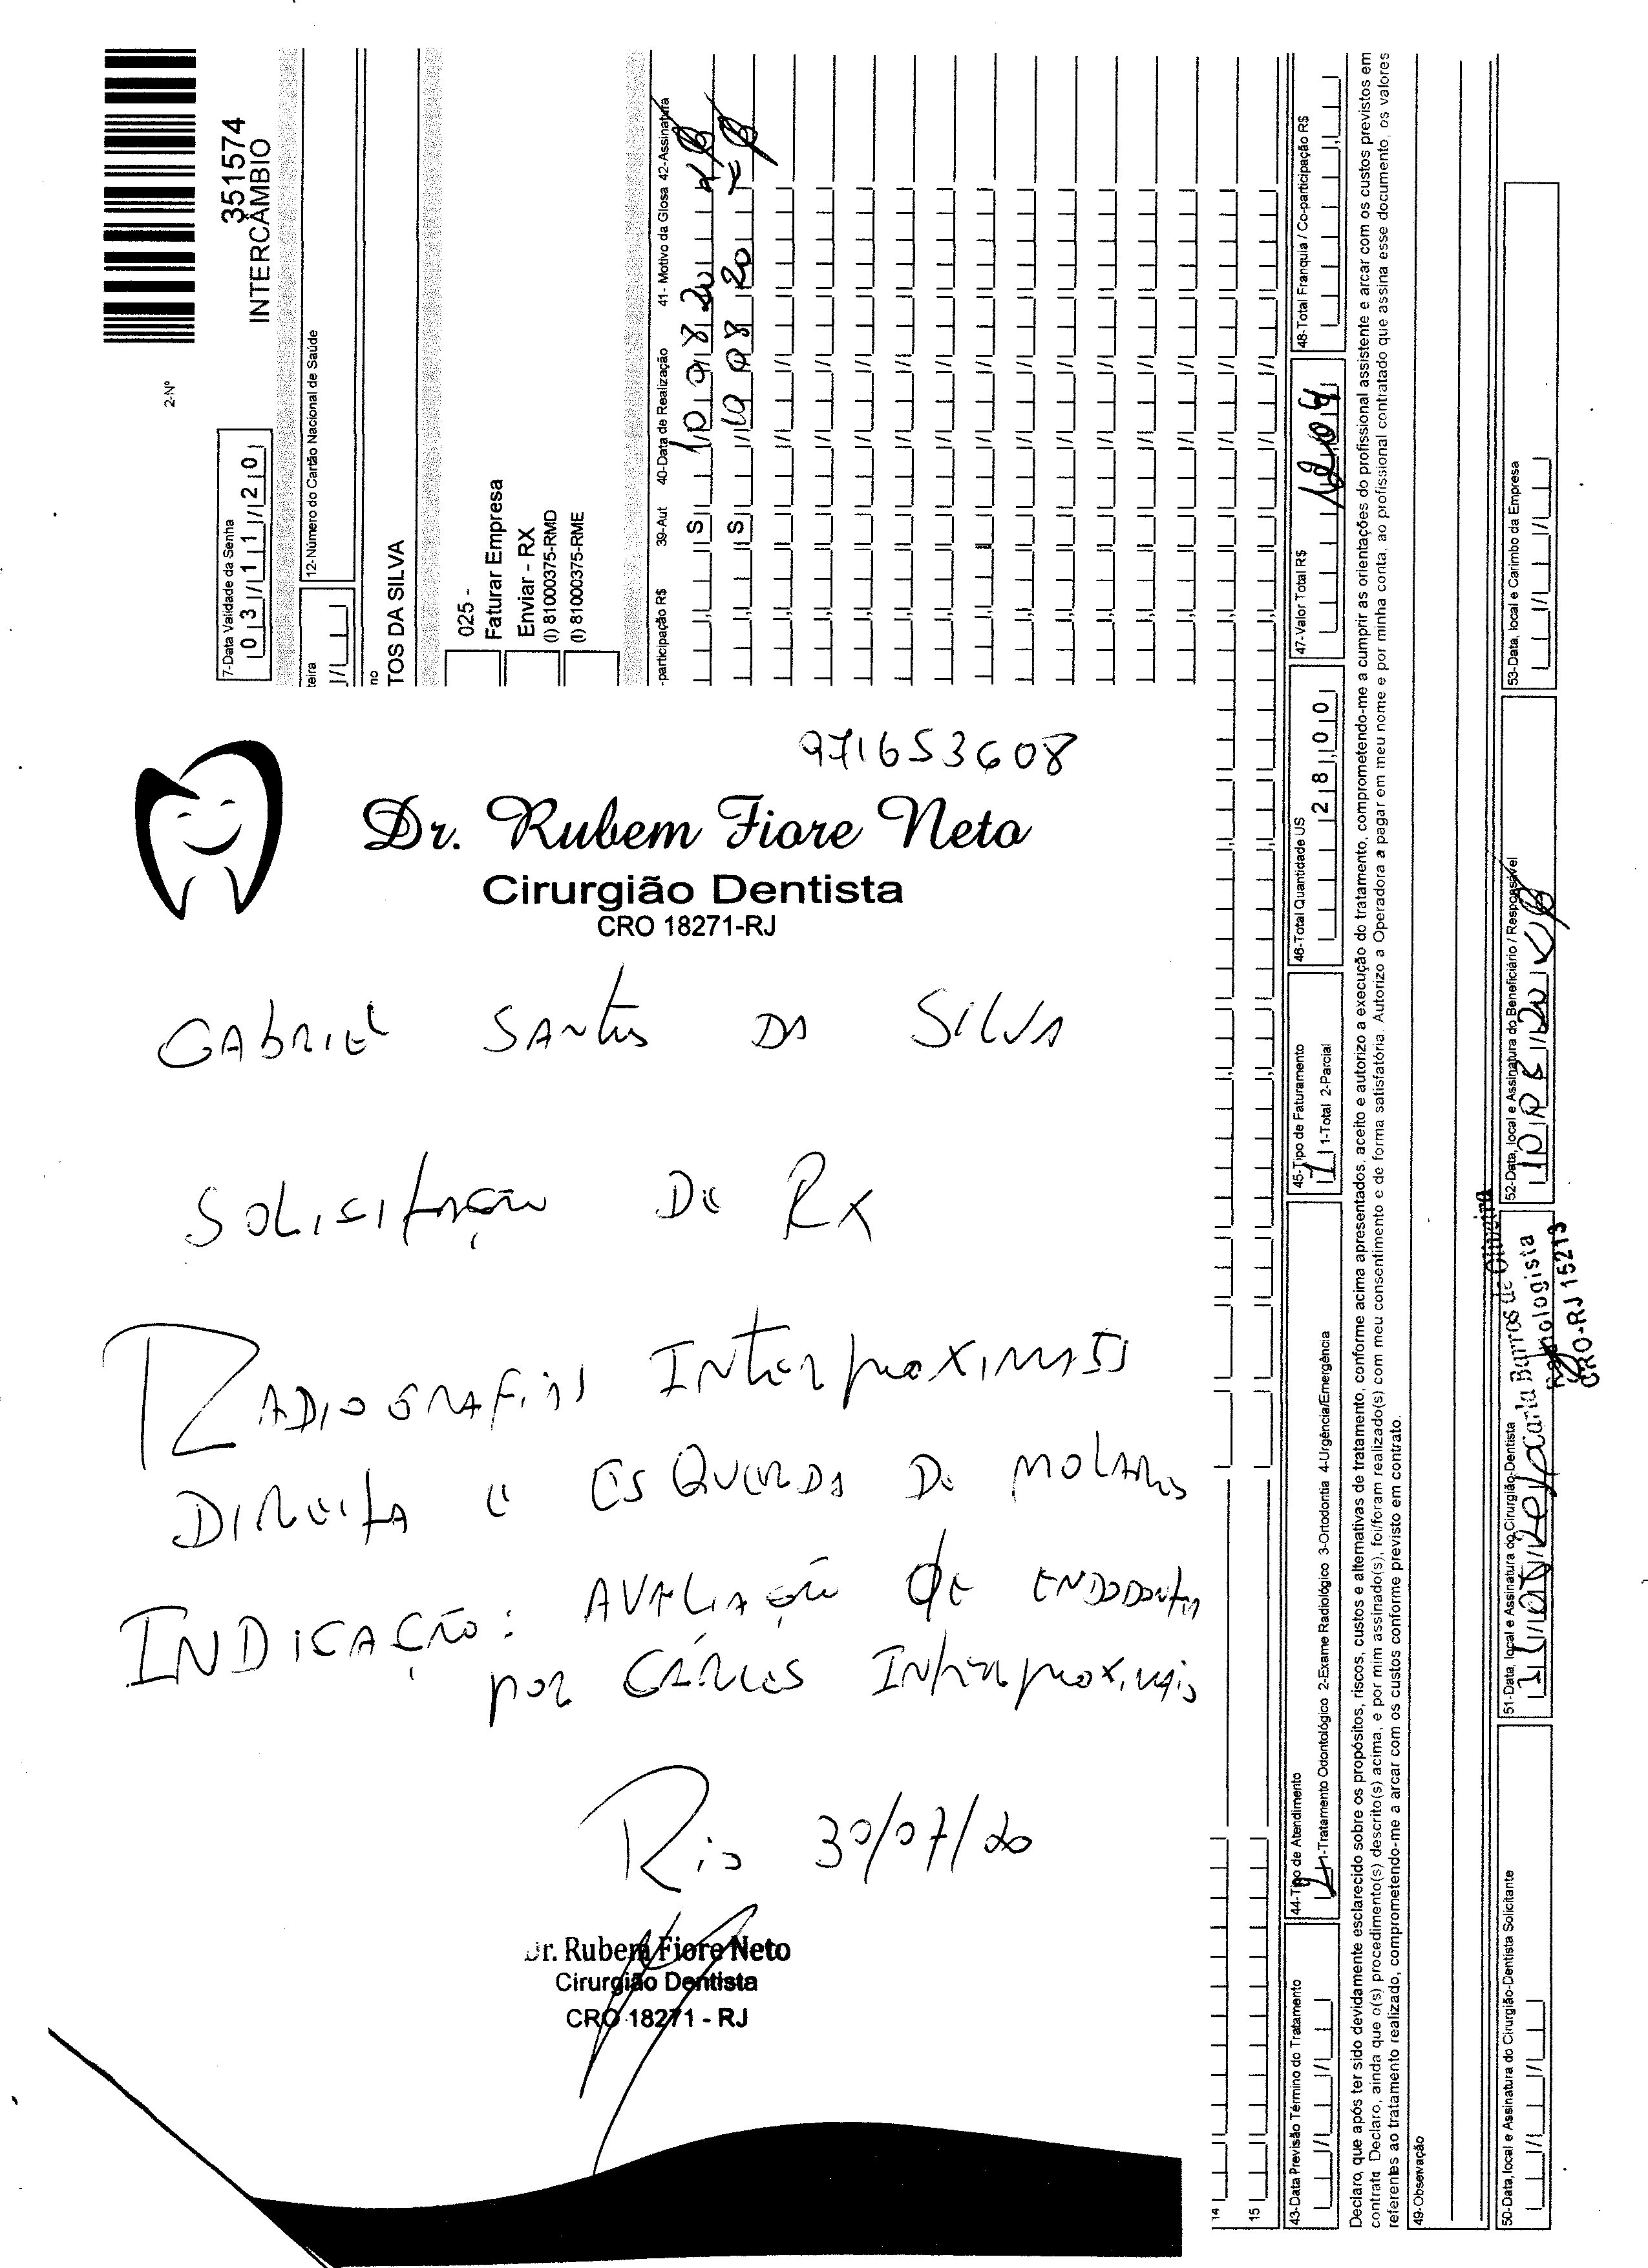 971653608
Dr. Rubem Fiore Neto
Cirurgião Dentista
CRO 18271-RJ
GABRIEL SANTOS DA SILVA
SOLICITAÇÃO DE RX
RADIOGRAFIAS INTERPROXIMAIS
DIREITA E ESQUERDA DE MOLARES
INDICAÇÃO: AVALIAÇÃO DE ENDODONTIA
POR CÁRIES INTERPROXIMAIS
Rio 30/07/20
Dr. Rubem Fiore Neto
Cirurgião Dentista
CRO 18271 - RJ
2-Nº
351574
INTERCÂMBIO
7-Data Validade da Senha
03/11/20
teira
12-Número do Cartão Nacional de Saúde
no
TOS DA SILVA
025 -
Faturar Empresa
Enviar - RX
(I) 81000375-RMD
(I) 81000375-RME
-participação R$ 39-Aut 40-Data de Realização 41- Motivo da Glosa 42-Assinatura
S 10 08 20
S 10 08 20
14
15
43-Data Previsão Término do Tratamento
44-Tipo de Atendimento
1-Tratamento Odontológico 2-Exame Radiológico 3-Ortodontia 4-Urgência/Emergência
45-Tipo de Faturamento
1 1-Total 2-Parcial
46-Total Quantidade US
28,00
47-Valor Total R$
48-Total Franquia / Co-participação R$
Declaro, que após ter sido devidamente esclarecido sobre os propósitos, riscos, custos e alternativas de tratamento, conforme acima apresentados, aceito e autorizo a execução do tratamento, comprometendo-me a cumprir as orientações do profissional assistente e arcar com os custos previstos em
contrato. Declaro, ainda que o(s) procedimento(s) descrito(s) acima, e por mim assinado(s), foi/foram realizado(s) com meu consentimento e de forma satisfatória. Autorizo a Operadora a pagar em meu nome e por minha conta, ao profissional contratado que assina esse documento, os valores
referentes ao tratamento realizado, comprometendo-me a arcar com os custos conforme previsto em contrato.
49-Observação
50-Data, local e Assinatura do Cirurgião-Dentista Solicitante
51-Data, local e Assinatura do Cirurgião-Dentista
Carla Barros de Oliveira
CRO-RJ 15213
52-Data, local e Assinatura do Beneficiário / Responsável
10 08 20
53-Data, local e Carimbo da Empresa